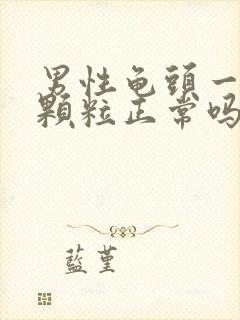 男性龟頭一
顆粒正常吗
藍堇